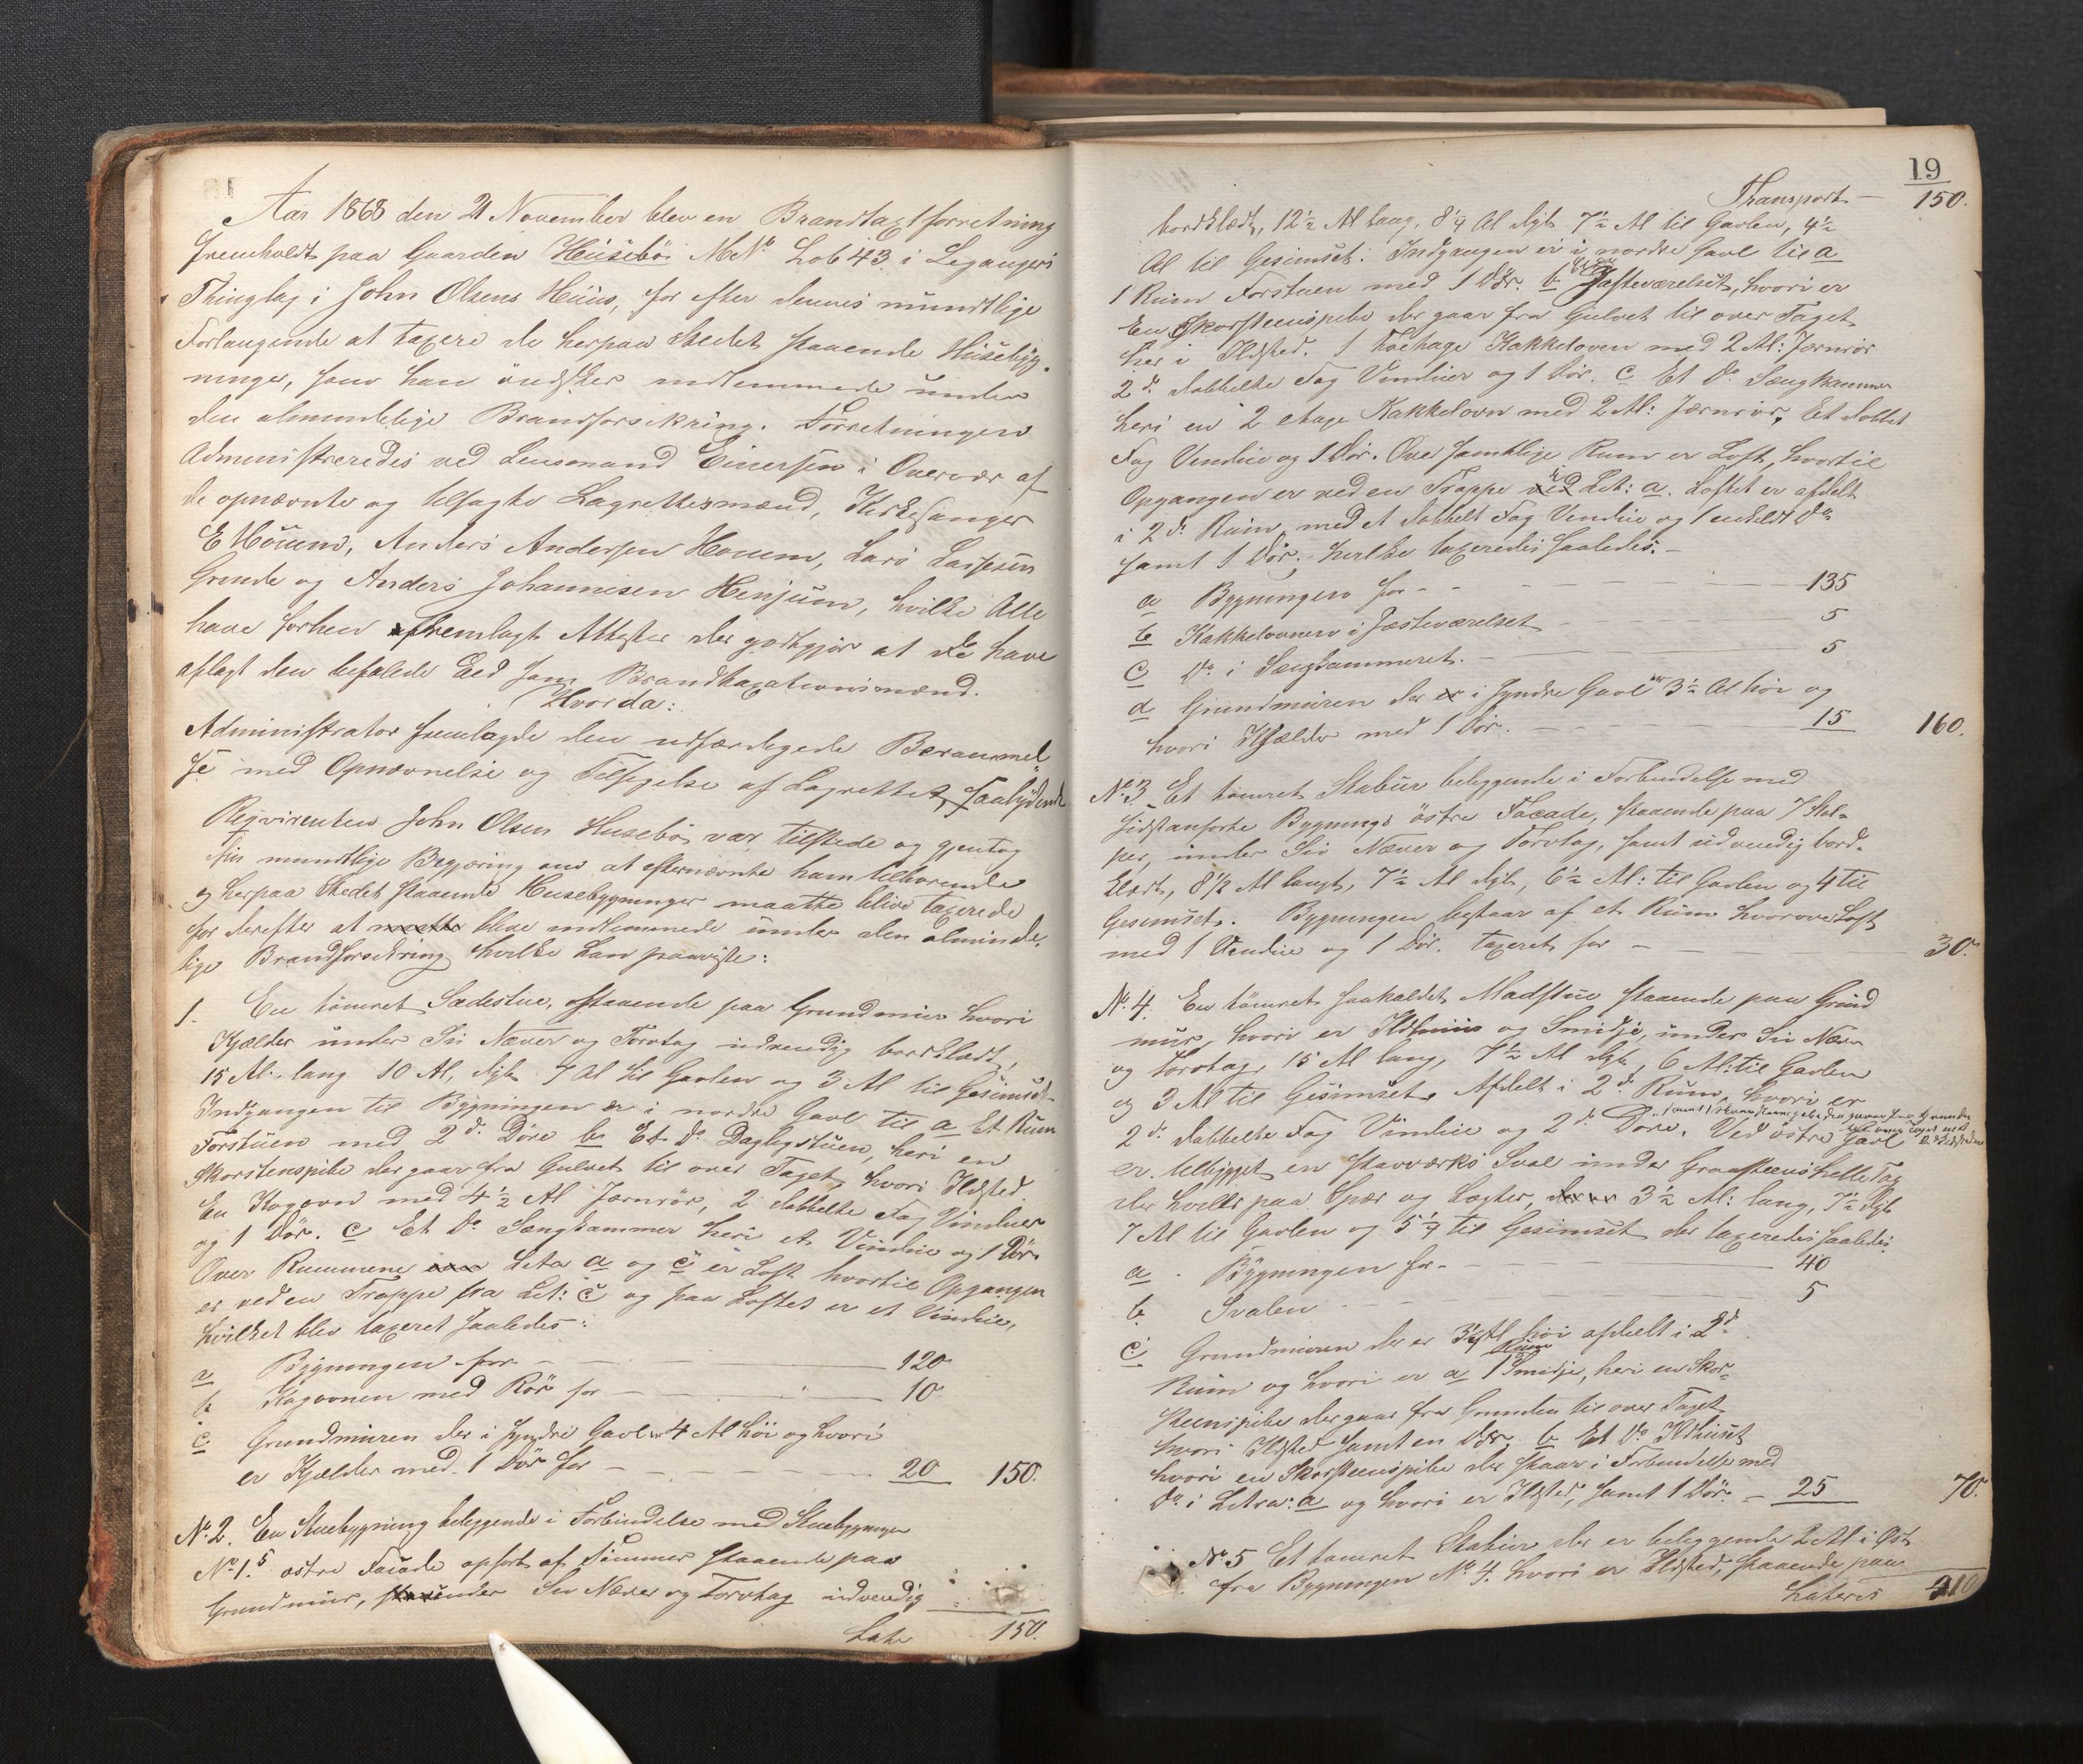 Aar 1868 den 21 November blev en Brandtaxtforretning
fremholdt paa Gaarden Husebö M.No Lob 43 i Leganger
Thinglag i John Olsens Huus, for efter dennes mundtlige
Forlangende at taxere de herpaa Stedet staaende Huusebyg-
ninger, som han önsker indlemmede under
den almindelige Brandforsikring. Forretningen
Administreredes ved Lensmand Einersen i Overvær af
de opnævnte og tilsagte Lagrettesmænd, Kirkesanger
E Möum, Anders Andersen Houum, Lars Larssen
Grinde og Anders Johannesen Henjum, hvilke Alle
have forhen fremlagt Attester der godtgjør at de have
aflagt den befalede Eed som Brandtaxationsmænd.
Hvorda:
Administrator fremlagde den udfærdigede Berammel-
se med Opnævnelse og Tilsigelse af Lagrettet, saalydende
Reqvirenten John Olsen Husebö var tilstede og gjentog
sin mundtlige Begjæring om at efternævnte ham tilhørende
og herpaa Stedet staaende Husebygninger maatte blive taxerede
for derefter at maatte blive indlemmede under den alminde-
lige Brandforsikring hvilke han paaviste:
1. En tömret Sædestue, staaende paa Grundmuur hvori
Kjælder under Sin Næver og Torvtag udvendig bordklædt,
15 Al. lang 10 Al. dyb 7 Al til Gavlen og 3 Al til Gesimset
Indgangen til Bygningen er i nordre Gavl til a Et Rum
Forstuen med 2de Döre b Et Do Dagligstuen, heri en
Skorstenspibe der gaar fra Gulvet til over Taget, hvori Ildsted
En Kogovn med 4½ Al Jernrör, 2 dobbelte Fag Vinduer
og 1 Dör. c Et Do Sengkammer heri et Vindue og 1 Dör
Over Rummene Litr a og c er Loft hvortil Opgangen
er ved en Trappe fra Lit: c og paa Loftet er et Vindue,
hvilket blev taxeret saaledes:
a Bygningen for 120
b Kogovnen med Rör for 10
c Grundmuren der i syndre Gavl er 4 Al höi og hvori
er Kjælder med 1 Dör for 20 150.
No. 2. En Stuebygning beliggende i Forbindelse med Stuebygningen
No 1s östre Facade opfört af Tömmer staaende paa
Grundmuur, under Sin Næver og Torvtag udvendig
Late 150.
19
Transport — 150.
bordklædt, 12½ Al lang, 8¼ Al dyb 7½ Al til Gavlen, 4½
Al til Gesimset. Indgangen er i nordre Gavl til a
1 Rum Forstuen med 1 Dör. b Gjesteværelset, hvori er
En Skorsteenspibe der gaar fra Gulvet til over Taget
her i Ildsted. 1 toetage Kakkeloven med 2 Al: Jernrör
2de dobbelte Fag Vinduer og 1 Dör. c Et Do Sengkammer
heri en 2 etage Kakkelovn med 2 Al: Jernrör, Et dobbelt
Fag Vindue og 1 Dör. Over samtlige Rum er Loft, hvortil
Opgangen er ved en Trappe i Lit: a. Loftet er afdelt
i 2de Rum, med et dobbelt Fag Vindue og 1 enkelt Do
samt 1 Dör; hvilke taxeredes saaledes. —
a Bygningen for 135
b Kakkelovnen i Gjesteværelset 5
c Do i Sengkammeret. 5
d Grundmuren der i syndre Gavl er 3½ Al höi og
hvori Kjælder med 1 Dör. 15 160.
No. 3 Et tömret Stabur beliggende i Forbindelse med
sidstanförte Bygnings östre Facade, staaende paa 7 Stol-
per, under Sin Næver og Torvtag, samt udvendig bord-
klædt, 8½ Al langt, 7½ Al dyb, 6½ Al: til Gavlen og 4 til
Gesimset. Bygningen bestaar af et Rum hvorover Loft
med 1 Vindue og 1 Dör. taxeret for 30.
No. 4. En tömret saakaldet Madstue staaende paa Grund
muur, hvori er Ildhuus og Smidje, under Sin Næver
og Torvtag, 15 Al lang, 7½ Al dyb, 6 Al: til Gavlen
og 3 Al til Gesimset. Afdelt i 2de Rum, hvori er
2de dobbelte Fag Vindue og 2de Döre. Ved östre Gavl
er tilbygget en Stavværks Sval under Graasteenshelle Tag
der hviler paa Spær og Lægter, 3½ Al: lang, 7½ dyb
7 Al til Gavlen og 5¼ til Gesimset der taxeredes saaledes.
a Bygningen for 40
b Svalen 5
c Grundmuren der er 3¼ Al höi afdelt i 2de
Rum og hvori er a 1 Smidje, heri en Skor-
steenspibe der gaar fra Grunden til over Taget
hvori Ildsted samt en Dör. b Et Do Ildhuset
hvori en Skorsteenspibe der staar i Forbindelse med
Do i Litra: a og hvori er Ildsted, samt 1 Dör. 25 70.
No 5 Et tömret Stabur der er beliggende 2 Al i Öst
fra Bygningen No 4. hvori er Ildsted, staaende paa
Lateris 410